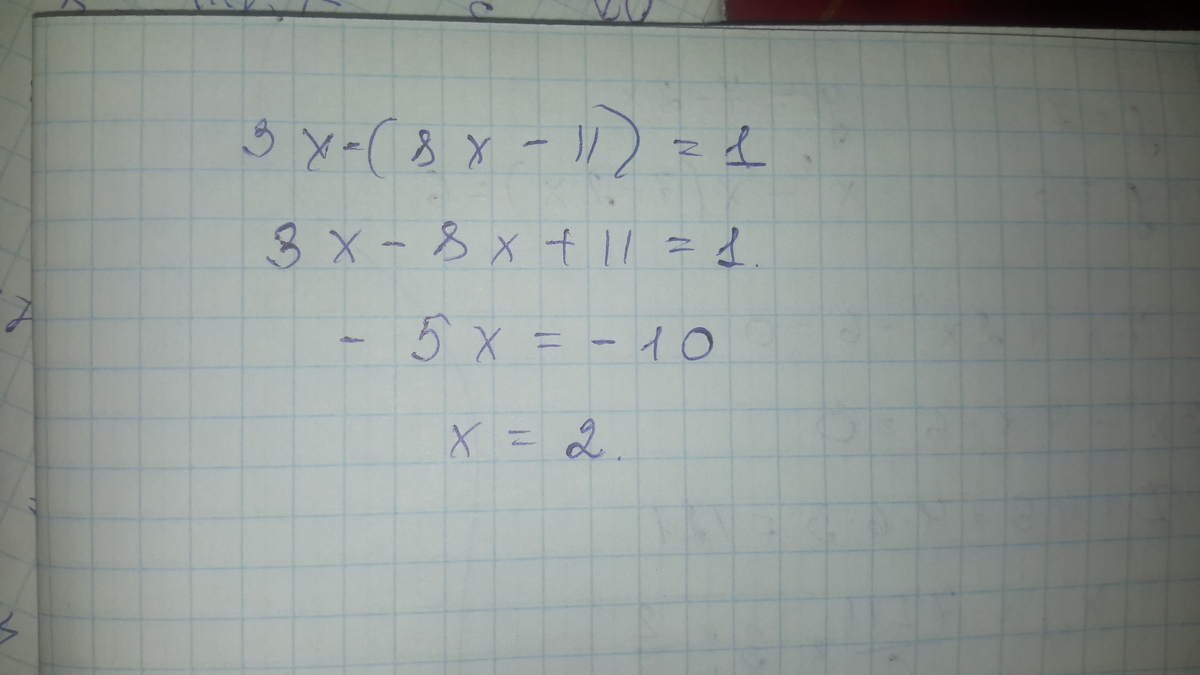 3x-(8x-11)=1
3x-8x+11=1.
-5x=-10
x=2.